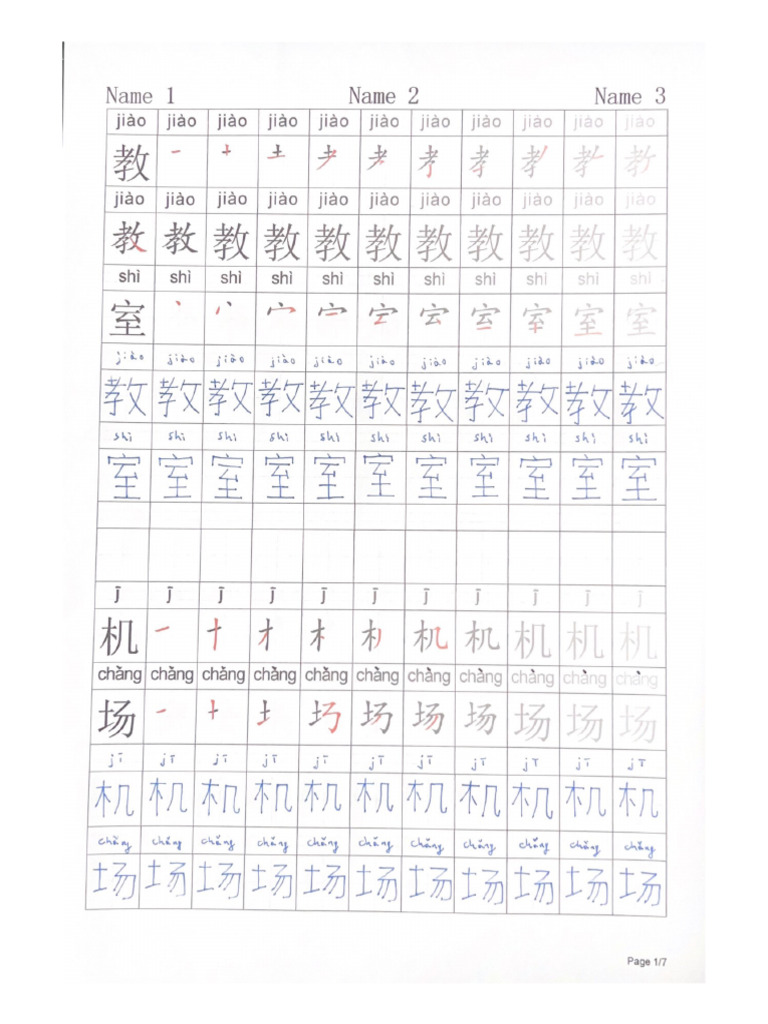 Name 1 Name 2 Name 3
jiào jiào jiào jiào jiào jiào jiào jiào jiào jiào jiào
教 一 十 土 耂 孝
jiào jiào jiào jiào jiào jiào jiào jiào jiào jiào jiào
教 教 教 教 教 教 教 教 教 教 教
shì shì shì shì shì shì shì shì shì shì shì
室 丶 宀 室
jiào jiào jiào jiào jiào jiào jiào jiào jiào jiào jiào
教 教 教 教 教 教 教 教 教 教 教
shì shì shì shì shì shì shì shì shì shì shì
室 室 室 室 室 室 室 室 室 室 室
jī jī jī jī jī jī jī jī jī jī jī
机 一 十 才 木 机 机 机 机 机
chǎng chǎng chǎng chǎng chǎng chǎng chǎng chǎng chǎng chǎng chǎng
场 一 十 土 场 场 场 场 场
jī jī jī jī jī jī jī jī jī jī jī
机 机 机 机 机 机 机 机 机 机 机
chǎng chǎng chǎng chǎng chǎng chǎng chǎng chǎng chǎng chǎng chǎng
场 场 场 场 场 场 场 场 场 场 场
Page 1/7